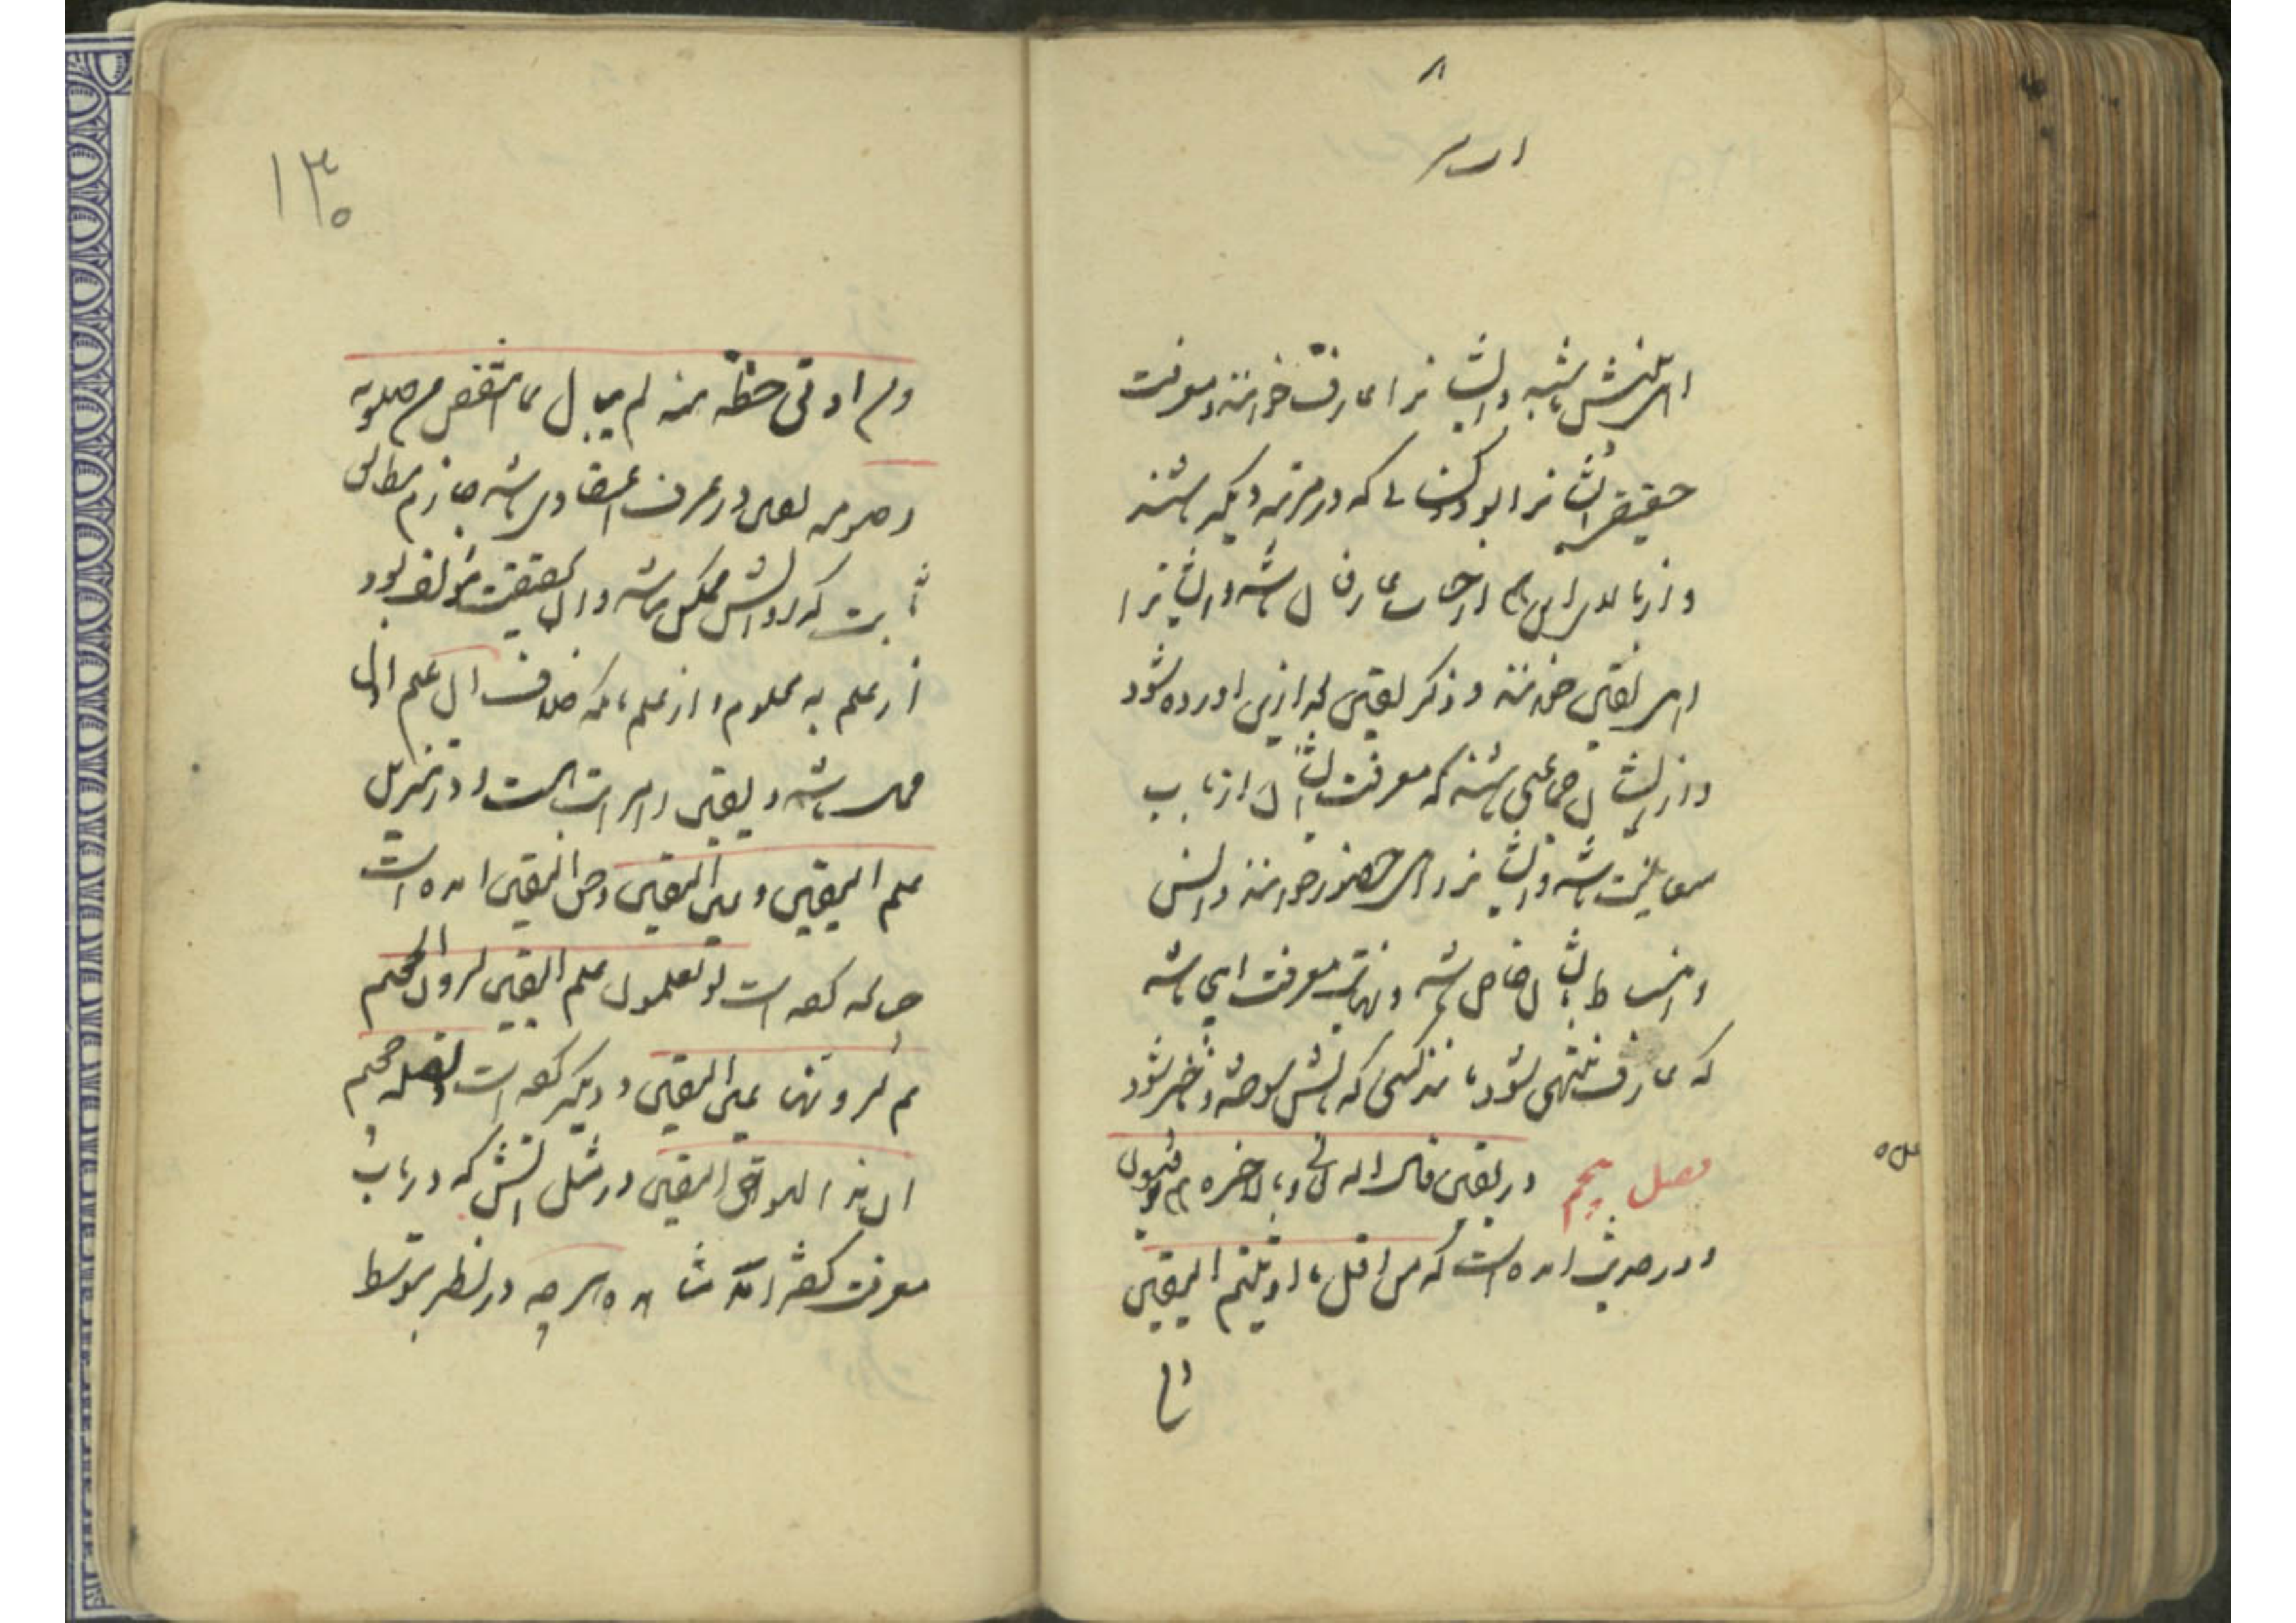 اهل بینش باشند و ایشان را عارف خوانند و معرفت
حقیقی ایشان را بود و کسانی که در مرتبه دیگر باشند
و از بالای این هم از حساب عارفان باشند و ایشان را
اهل یقین خوانند و ذکر یقین بعد ازین آورده شود
و از ایشان جماعتی باشند که معرفت ایشان از باب
معاینت باشد و ایشان را اهل حضور خوانند و انس
و انبساط بایشان خاص باشد و نهایت معرفت اینجا باشد
که عارف منتهی شود مانند کسی که بآتش سوخته و ناچیز شود
فصل پنجم در یقین قال الله تعالی و بالآخرة هم یوقنون
و در حدیث آمده است که من اقل ما اوتیتم الیقین
۱۳۰
و من اوتی حظه منه لم یبال بما انتقص من صلوته
و صومه یقین در عرف اعتقادی باشد جازم مطابق
ثابت که زوالش ممکن نباشد و آن بحقیقت مؤلف بود
از علم به معلوم و از علم بآنکه خلاف آن علم اول
محال باشد و یقین را مراتب است و در تنزیل
علم الیقین و عین الیقین و حق الیقین آمده است
چنانکه گفته است لو تعلمون علم الیقین لترون الجحیم
ثم لترونها عین الیقین و دیگر گفته است و تصلیة جحیم
ان هذا لهو حق الیقین و در مثل آتش که در باب
معرفت گفته آمد مشاهده هر چه در نظر بتوسط